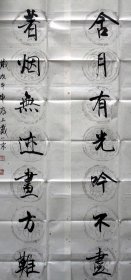 含月有光吟不尽
著烟無迹畫方難